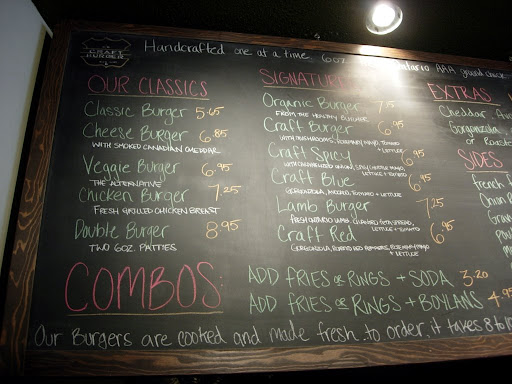 CRAFT
BURGER
Handcrafted one at a time. 6oz. Ontario AAA ground chuck
OUR CLASSICS
Classic Burger 5.45
Cheese Burger 6.85
WITH SMOKED CANADIAN CHEDDAR
Veggie Burger 6.95
THE ALTERNATIVE
Chicken Burger 7.25
FRESH GRILLED CHICKEN BREAST
Double Burger 8.95
TWO 6OZ. PATTIES
SIGNATURE
Organic Burger 7.15
FROM THE HEALTHY BUTCHER
Craft Burger 6.95
WITH MUSHROOMS, ROSEMARY MAYO, TOMATO
+ LETTUCE
Craft Spicy 6.95
WITH CARAMELIZED ONION, SPICY CHIPOTLE MAYO
LETTUCE + TOMATO
Craft Blue 6.95
GORGONZOLA, TOMATO + LETTUCE
Lamb Burger 7.25
FRESH ONTARIO LAMB, FETA SPREAD,
LETTUCE + TOMATO
Craft Red 6.95
GORGONZOLA, ROASTED RED PEPPERS, ROSEMARY MAYO
+ LETTUCE
EXTRAS
Cheddar
Gorgonzola
or Roaste
SIDES
French f
Onion R
COMBOS:
ADD FRIES OR RINGS + SODA 3.20
ADD FRIES OR RINGS + BOYLANS 4.95
Our Burgers are cooked and made fresh to order, it takes 8 to 10